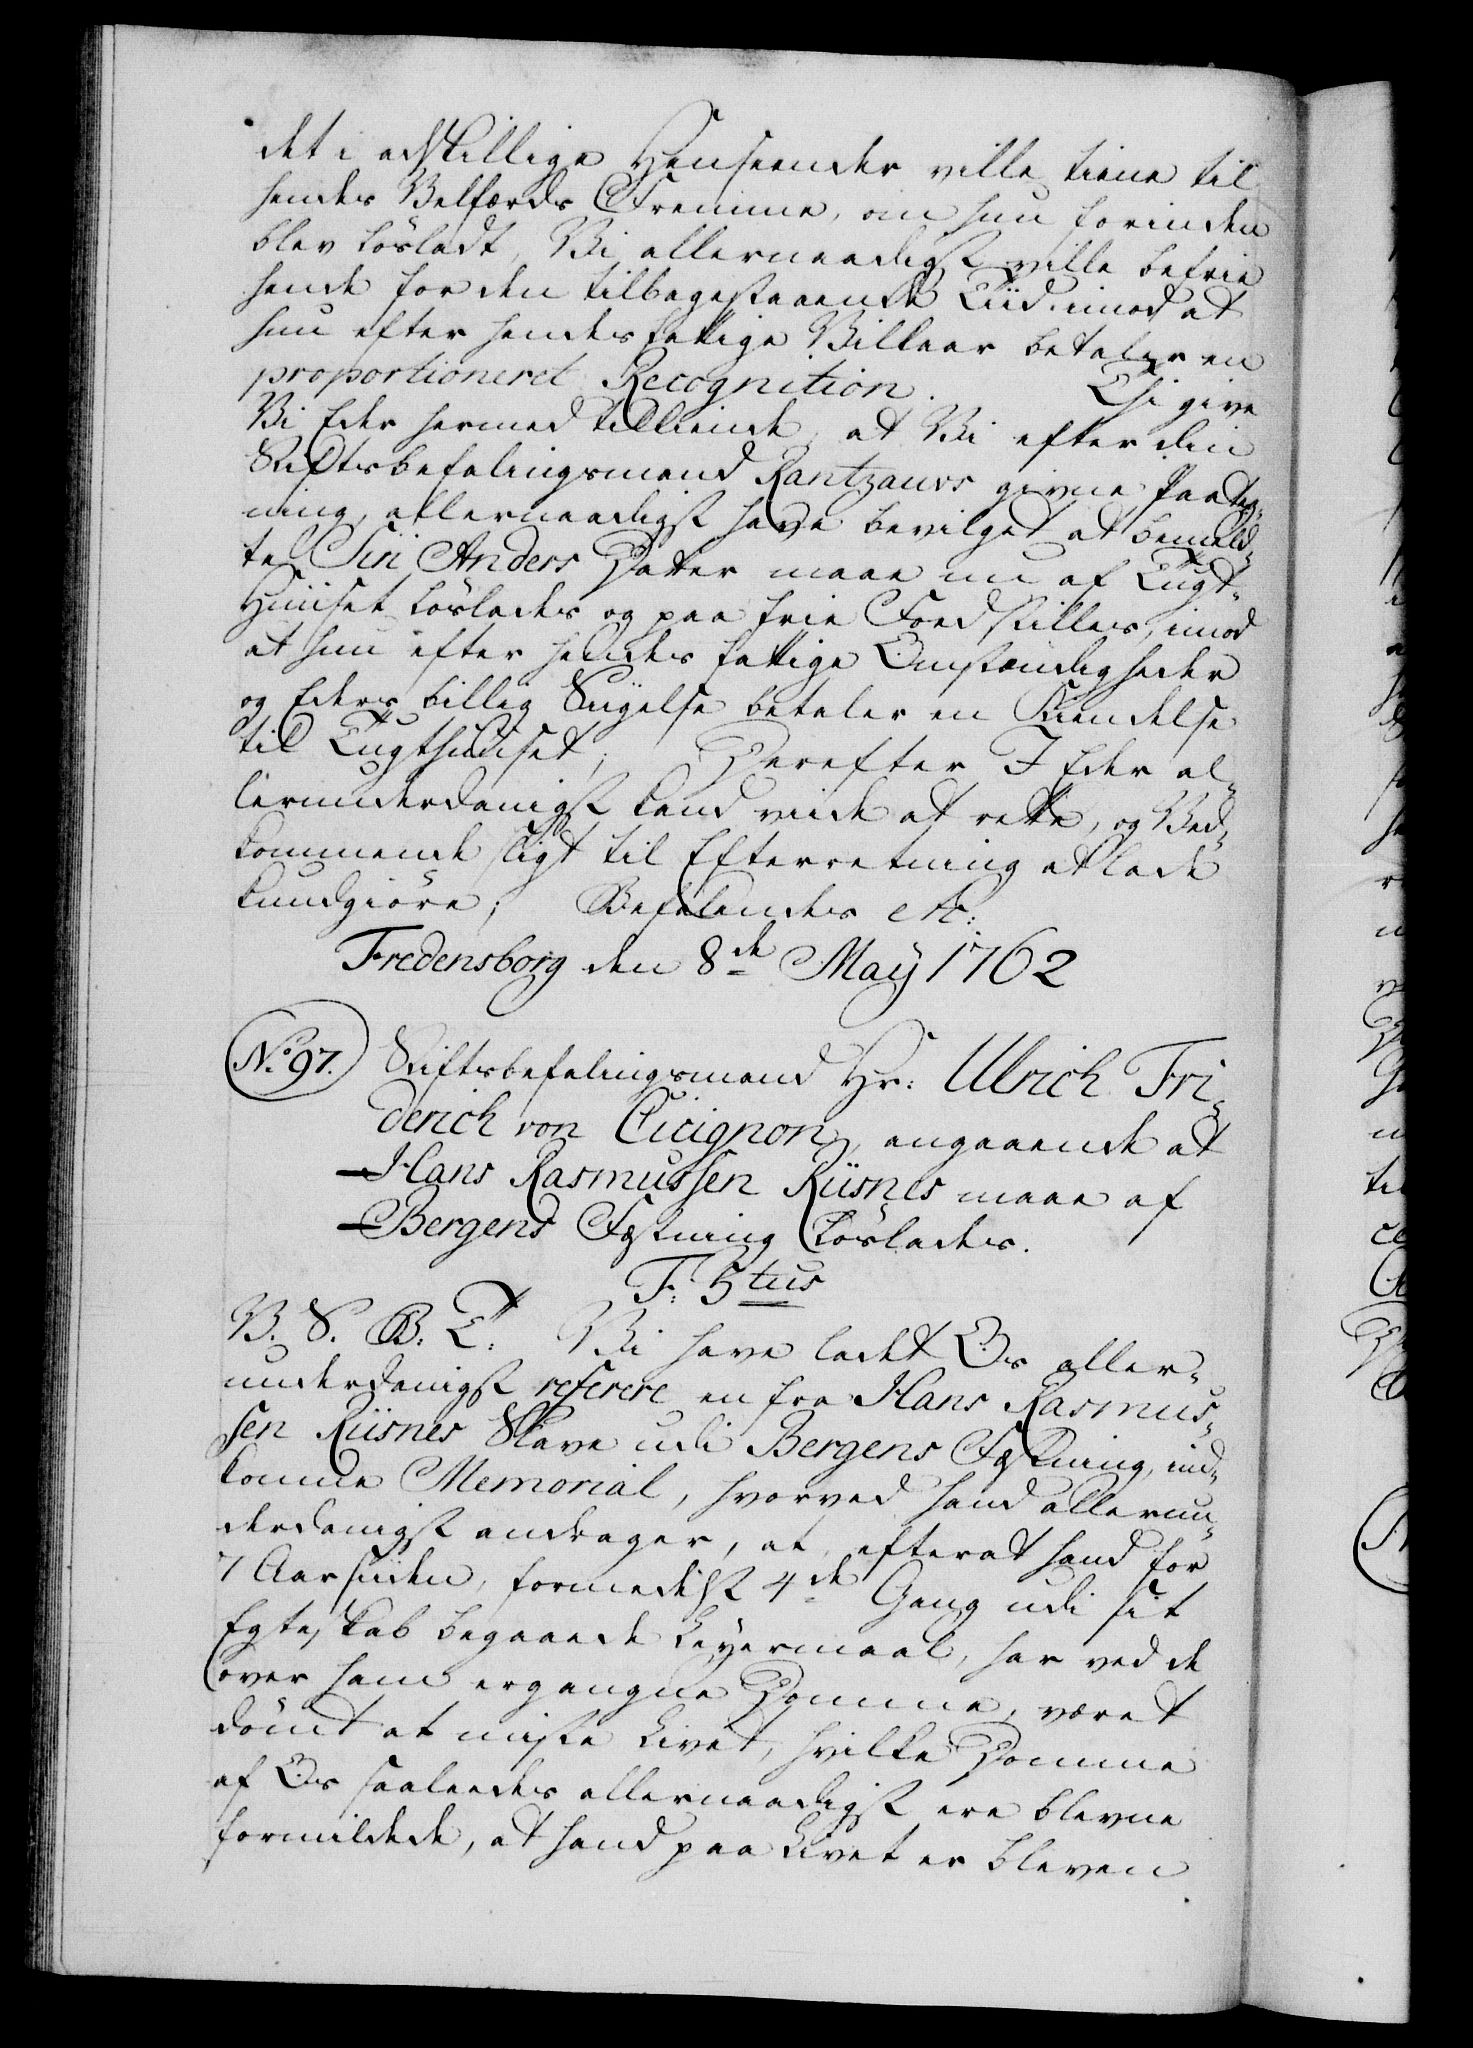 det i adskillige Henseender ville tiene til
hendes Velfærds Fremme, om hun forinden
blev løsladt, Vi allernaadigst ville befrie
hende for den tilbagestaaende Tiid imod at
hun efter hendes fattige Villkaar betaler en
proportioneret Recognition. Thi give
Vi Eder hermed tilkiende, at Vi efter din
Stiftsbefalingsmand Rantzaus givne Paateg-
ning, allernaadigst have bevilget at bemeld-
te Siri Anders Datter maae nu af Tugt-
Huuset løslades og paa frie Foed stilles, imod
at hun efter hendes fattige Omstændigheder
og Eders billig Siigelse betaler en Kiendelse
til Tugthuuset; Derefter I Eder al-
lerunderdanigst kand viide at rette, og Ved-
kommende sligt til Efterretning at lade
kundgiøre; Befalendes etc:
Fredensborg den 8de May 1762
No 97. Stiftsbefalingsmand Hr: Ulrich Fri-
derich von Cicignon, angaaende at
Hans Rasmussen Riisnes maae af
Bergens Fæstning løslades.
F: 5tus
V. S. B: T: Vi have ladet Os aller-
underdanigst referere en fra Hans Rasmus-
sen Riisnes Slave udi Bergens Fæstning, ind-
komne Memorial, hvorved hand allerun-
derdanigst andrager, at efterat hand for
7 Aar siiden, formedelst 4de Gang udi sit
Egteskab begaaede Leyermaal, har ved de
over ham ergangne Domme, været
dømt at miste Livet, hvilke Domme
af Os saaleedes allernaadigst ere blevne
formildede, at hand paa Livet er bleven